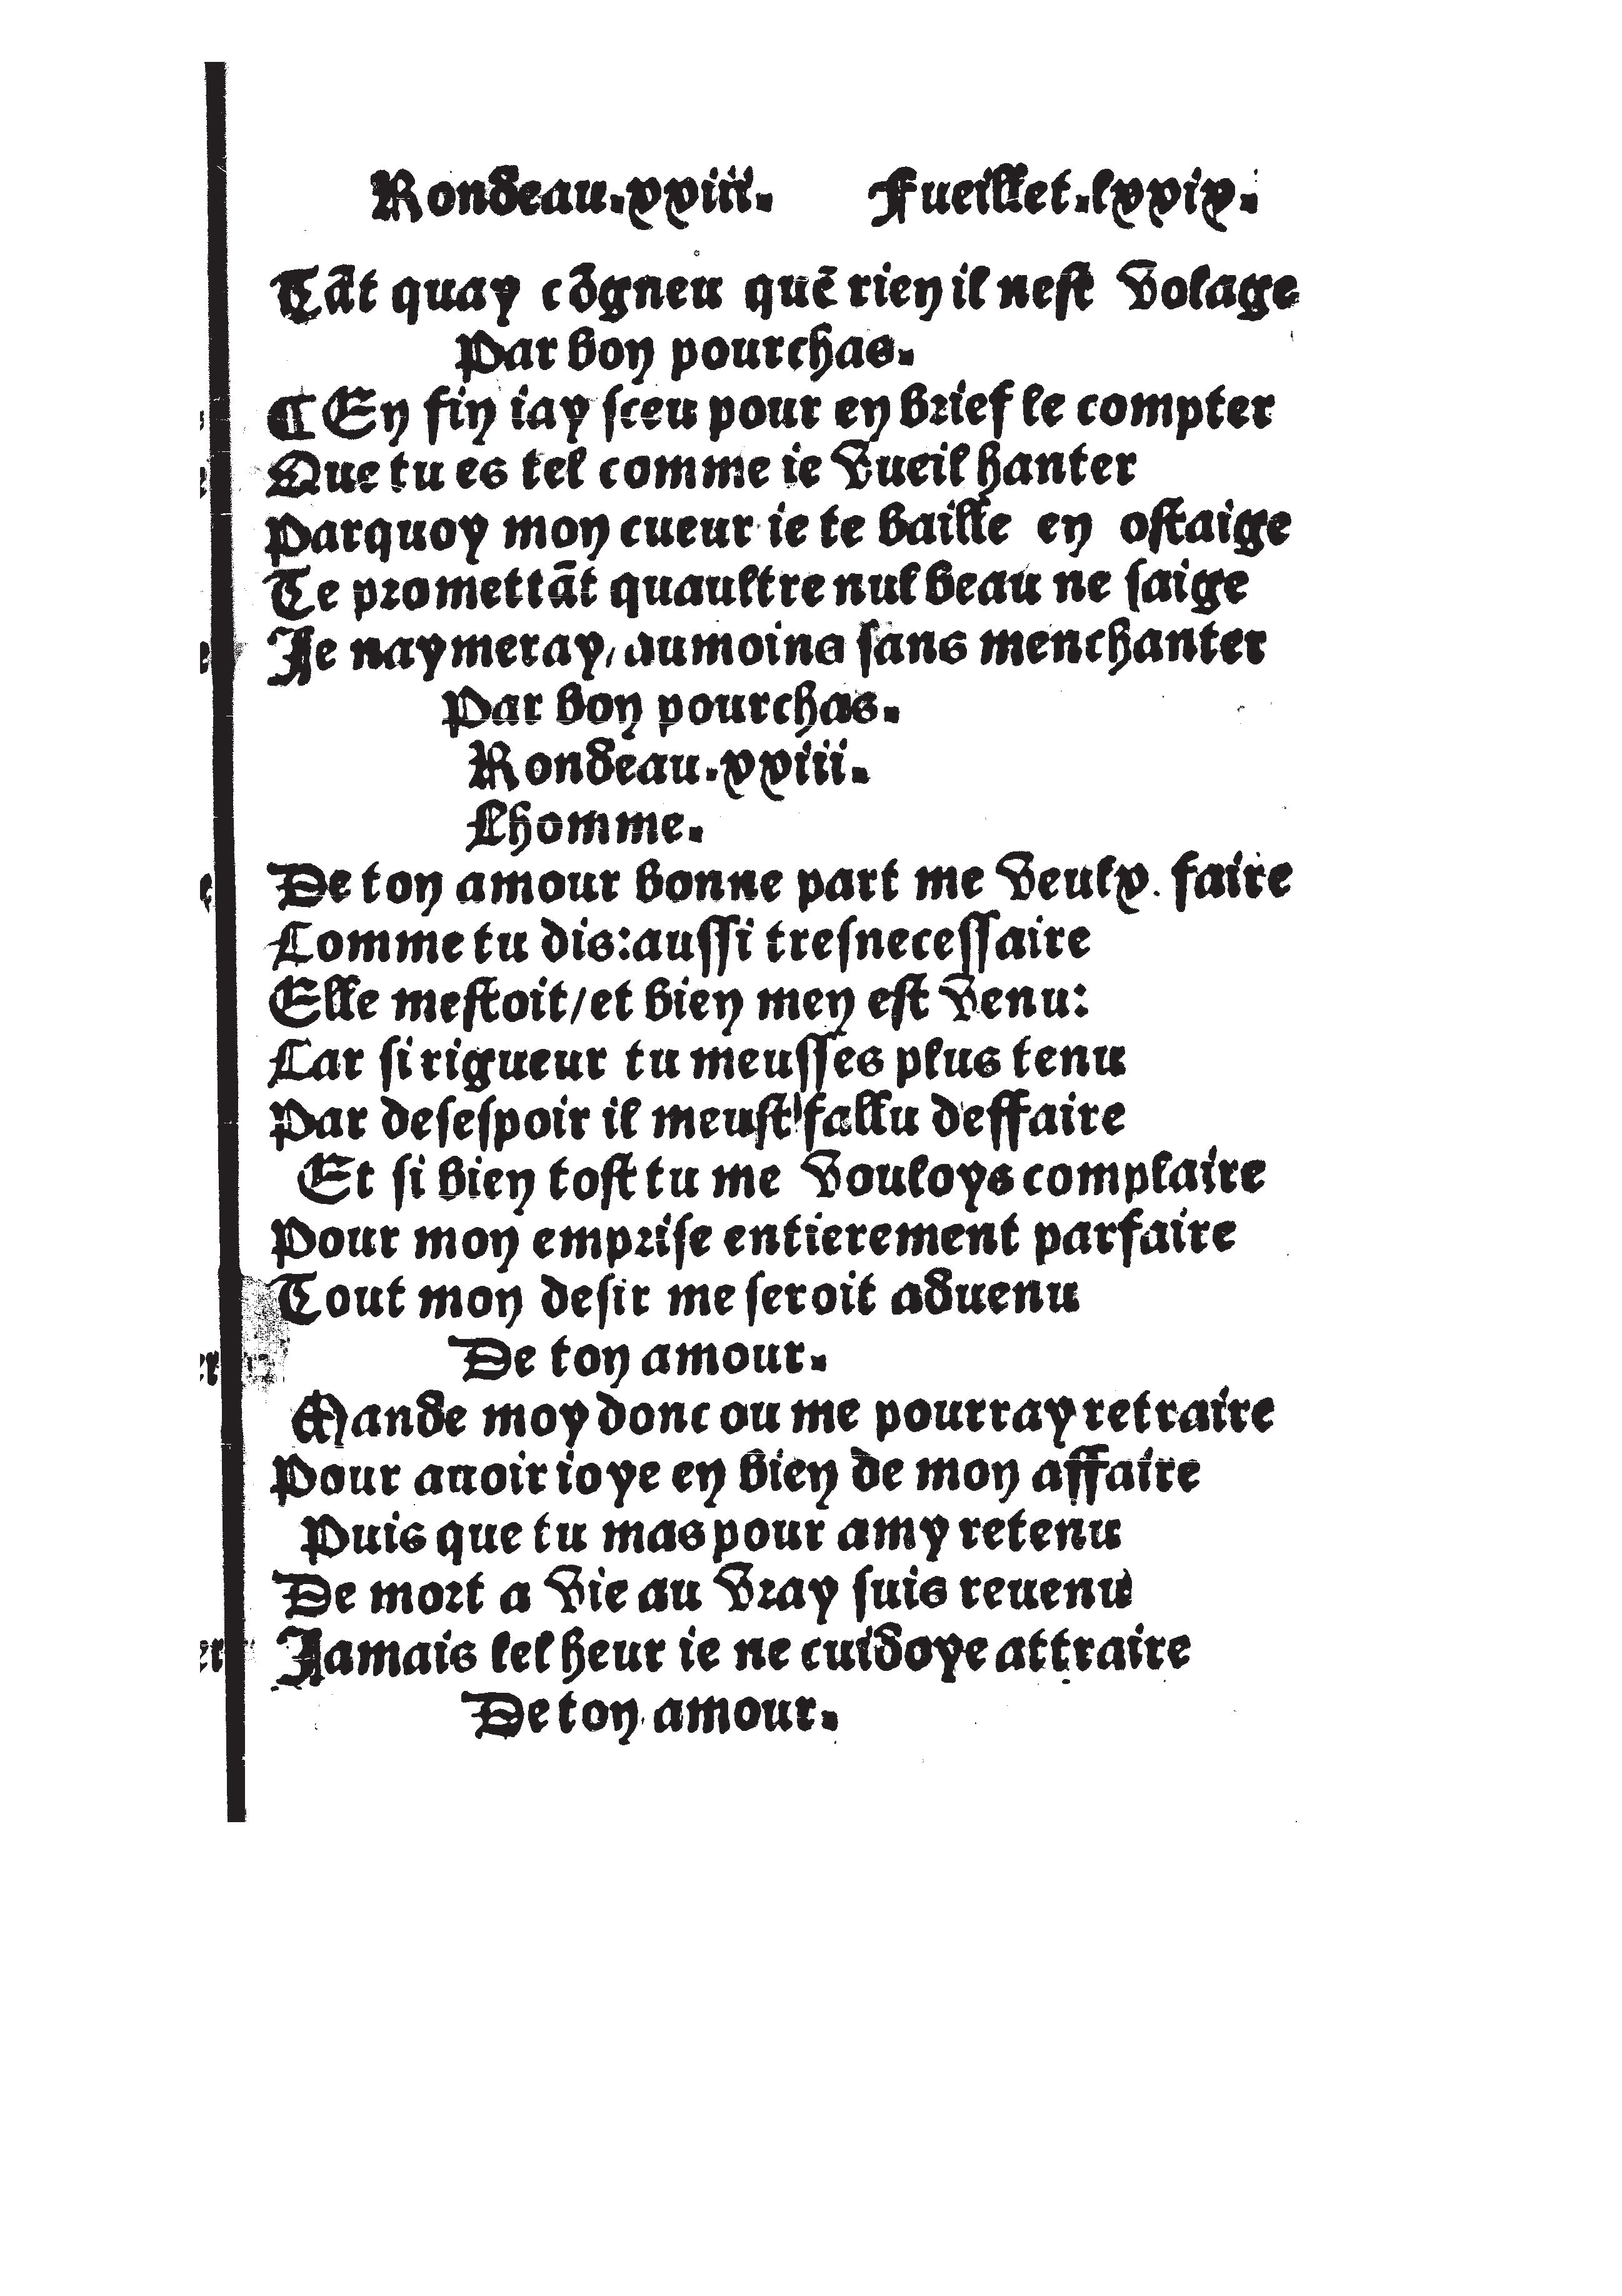 Rondeau.xxiii. Fueillet.lxxix.
Tãt quay cõgneu quẽ rien il nest volage
Par bon pourchas.
¶ En fin iay sceu pour en brief le compter
Que tu es tel comme ie vueil hanter
Parquoy mon cueur ie te baille en ostaige
Te promettãt quaultre nul beau ne saige
Je naymeray/aumoins sans menchanter
Par bon pourchas.
Rondeau.xxiii.
Lhomme.
De ton amour bonne part me veulx faire
Comme tu dis:aussi tresnecessaire
Elle mestoit/et bien men est venu:
Car si rigueur tu meusses plus tenu
Par desespoir il meust fallu deffaire
Et si bien tost tu me vouloys complaire
Pour mon emprise entierement parfaire
Tout mon desir me seroit aduenu
De ton amour.
Mande moy donc ou me pourray retraire
Pour auoir ioye en bien de mon affaire
Puis que tu mas pour amy retenu
De mort a vie au vray suis reuenu
Jamais lel heur ie ne cuidoye attraire
De ton amour.